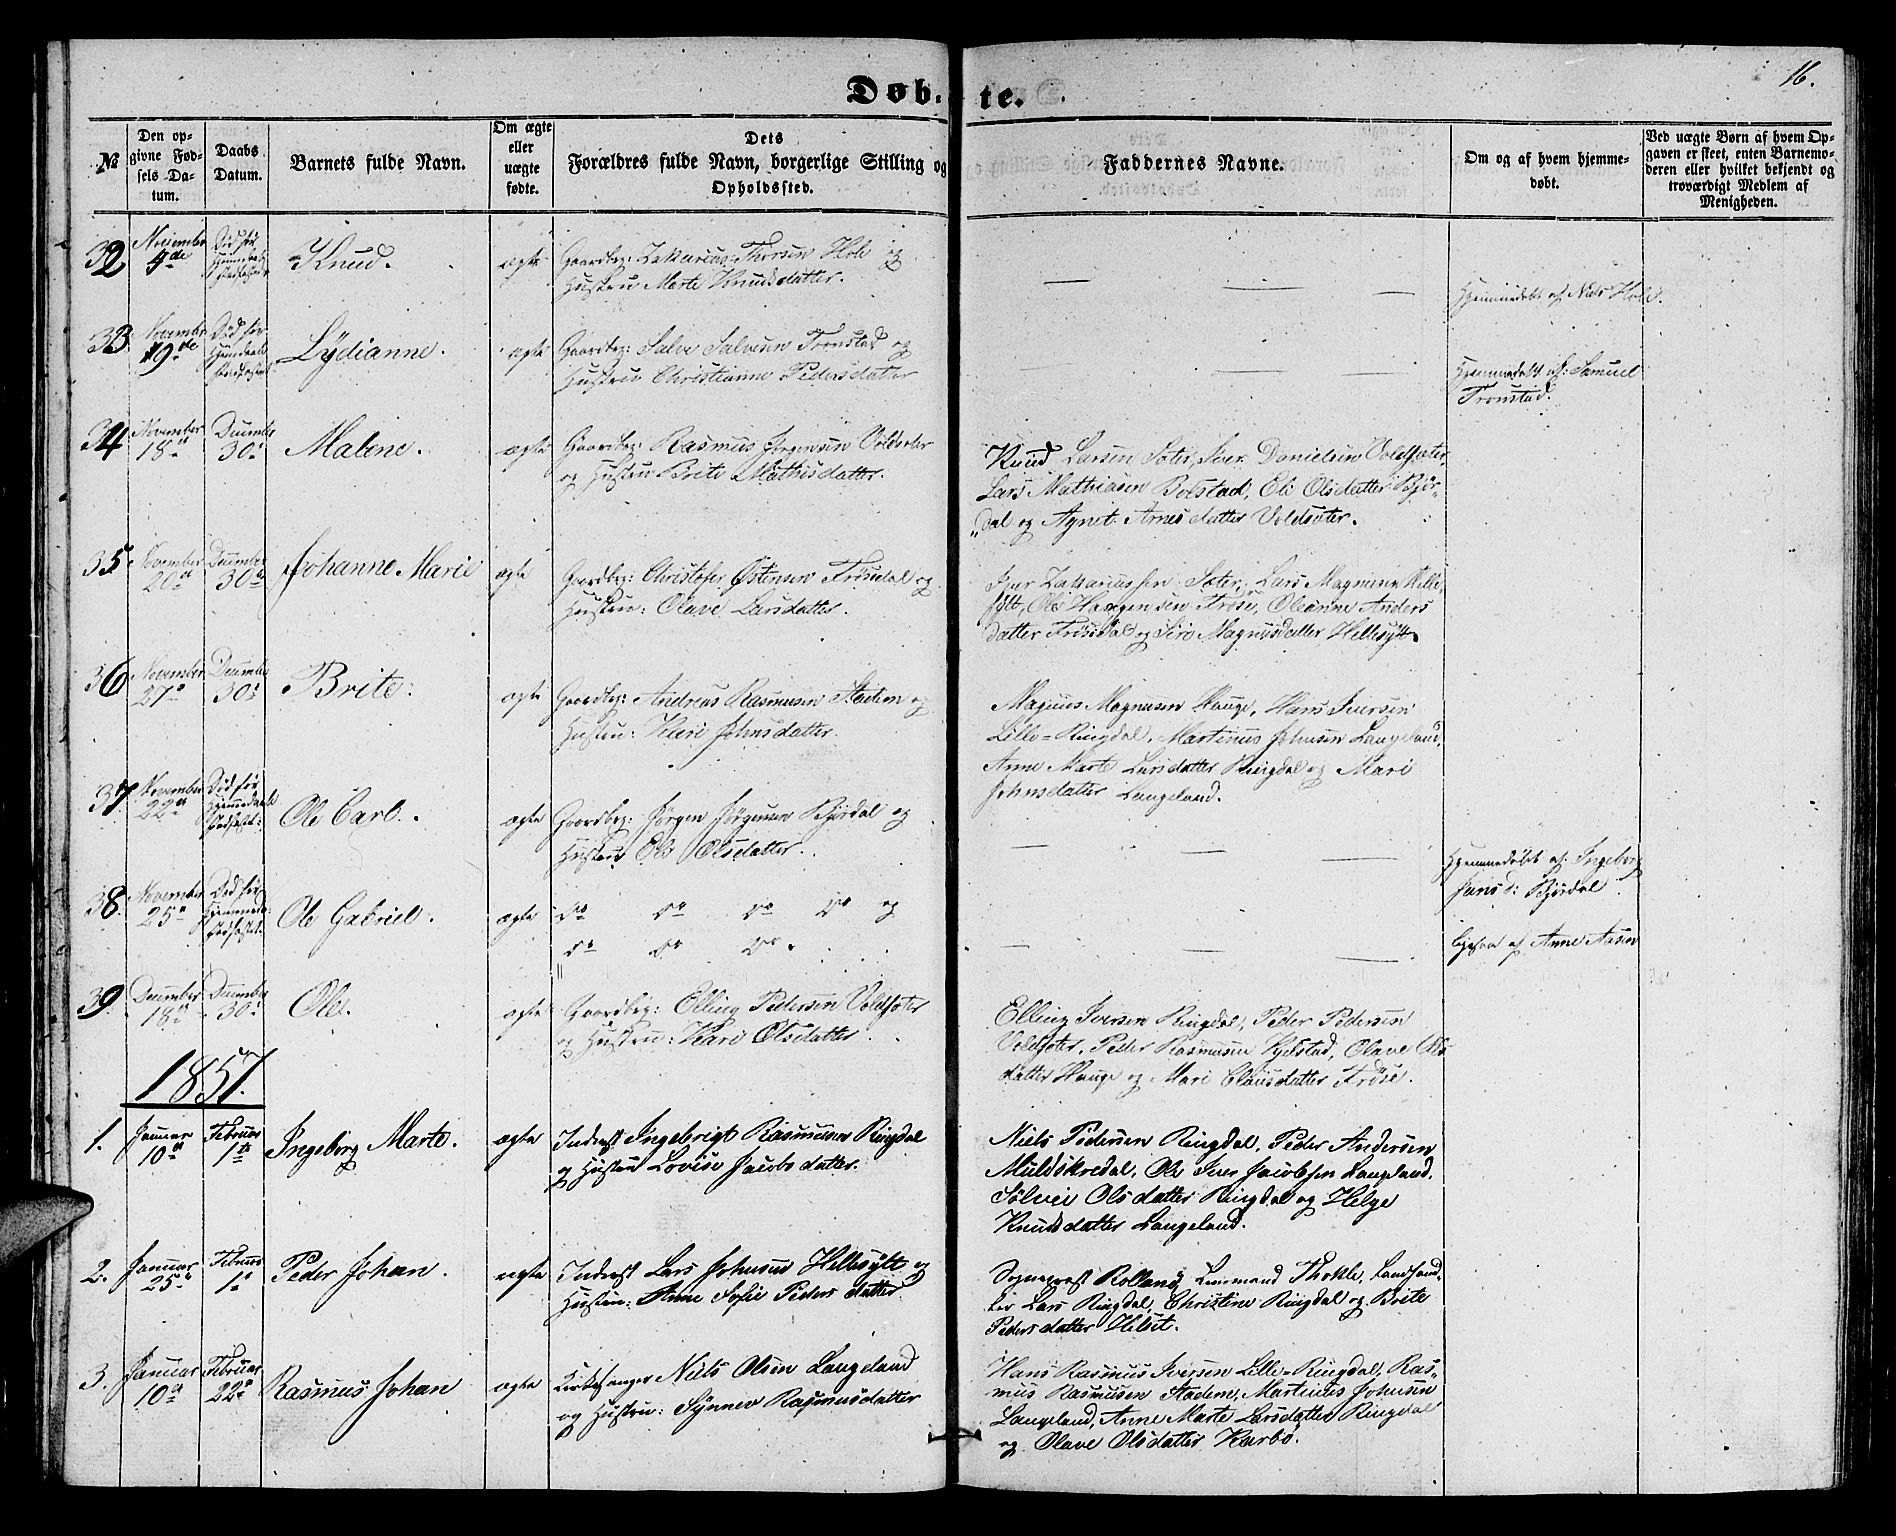 16.
Døb- te.
№
Den op-
givne Fød-
sels Da-
tum.
Daabs
Datum.
Barnets fulde Navn.
Om ægte
eller
uægte
fødte.
Dets
Forældres fulde Navn, borgerlige Stilling og
Opholdssted.
Faddernes Navne.
Om og af hvem hjemme-
døbt.
Ved uægte Børn af hvem Op-
gaven er skeet, enten Barnemo-
deren eller hvilket bekjendt og
troværdigt Medlem af
Menigheden.
32 November 9de Død før
Knud. ægte Gaardbr: Zakarias Thorsen Hole og
Hustru Marte Knudsdatter.
Hjemmedøbt af Niels Hole.
33 November 19de Død før
Lydianne. ægte Gaardbr: Salve Salvesen Tronstad og
Hustru Christianne Pedersdatter
Hjemmedøbt af: Samuel
Tronstad.
34 November 18de December 30. Malene. ægte Gaardbr: Rasmus Jørgensen Voldsæter
og Hustru Brite Mathisdatter.
Knud Larsen Sæter, Iver Danielsen Voldsæter,
Lars Mathiasen Bolstad, Eli Olsdatter Bjør-
dal og Agnet Arnesdatter Voldsæter.
35 November 20de December 30. Johanne Marie ægte Gaardbr: Christofer Østensen Frøsdal og
Hustru: Olave Larsdatter.
Iver Zakariassen Sæter, Lars Magnusen Helle-
sylt, Ole Haagensen Frøse, Oleanne Anders
datter Frøsdal og Siro Magnusdatter Hellesylt.
36 November 27. December 30. Brite. ægte Gaardbr: Andreas Rasmusen Stadem og
Hustru: Kari Johnsdatter.
Magnus Magnusen Hauge, Hans Iversen
Lille-Ringdal, Martinus Johnsen Langeland,
Anne Marte Larsdatter Ringdal og Mari
Johnsdatter Langeland.
37 November 22de Død før
Ole Carl. ægte Gaardbr: Jørgen Jørgensen Bjørdal og
Hustru Ols Olsdatter.
Hjemmedøbt af: Ingeborg
Jansd: Bjørdal.
38. November 25. Død før
Ole Gabriel. ægte Do Do Do Do og
Do Do Do.
ligesaa af Anne Aasen
39. December 18. December 30. Ole. ægte Gaardbr: Elling Pedersen Voldsæter
og Hustru: Kari Olsdatter.
Elling Iversen Ringdal, Peder Pedersen
Voldsæter, Peder Rasmusen Kjelstad, Olave Ols
datter Hauge og Mari Clausdatter Frøse.
1857.
1. Januar 10de Februar 1ste Ingeborg Marte. ægte Inderst Ingebrigt Rasmussen Ringdal
og Hustru Lovise Jacobsdatter.
Niels Pedersen Ringdal, Peder Andersen
Muldskredal, Ole Iver Jacobsen Langeland,
Sølvei Olsdatter Ringdal og Helge
Knudsdatter Langeland.
2. Januar 25. Februar 1. Peder Johan. ægte Inderst Lars Johnsen Hellesylt og
Hustru: Anne Sofie Pedersdatter
Sogneprest Rolland, Lensmand Thokle, Landhand-
ler Lars Ringdal, Christine Ringdal og Brite
Pedersdatter Helset.
3. Januar 10de Februar 22. Rasmus Johan ægte Kirkesanger Niels Olsen Langeland
og Hustru: Synnev Rasmusdatter
Hans Rasmus Iversen Lille-Ringdal, Ras-
mus Rasmusen Stadem, Martinus Johnsen
Langeland, Anne Marte Larsdatter Ringdal
og Olave Olsdatter Karbø.